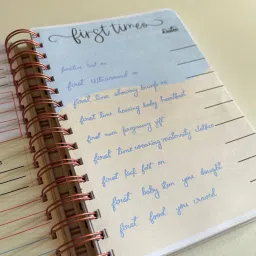 first times
Dates
positive test on
first ultrasound on
first time showing bump on
first time hearing baby heartbeat
first mom pregnancy gift
first time wearing maternity clothes
first kick felt on
first baby item you bought
first food you craved